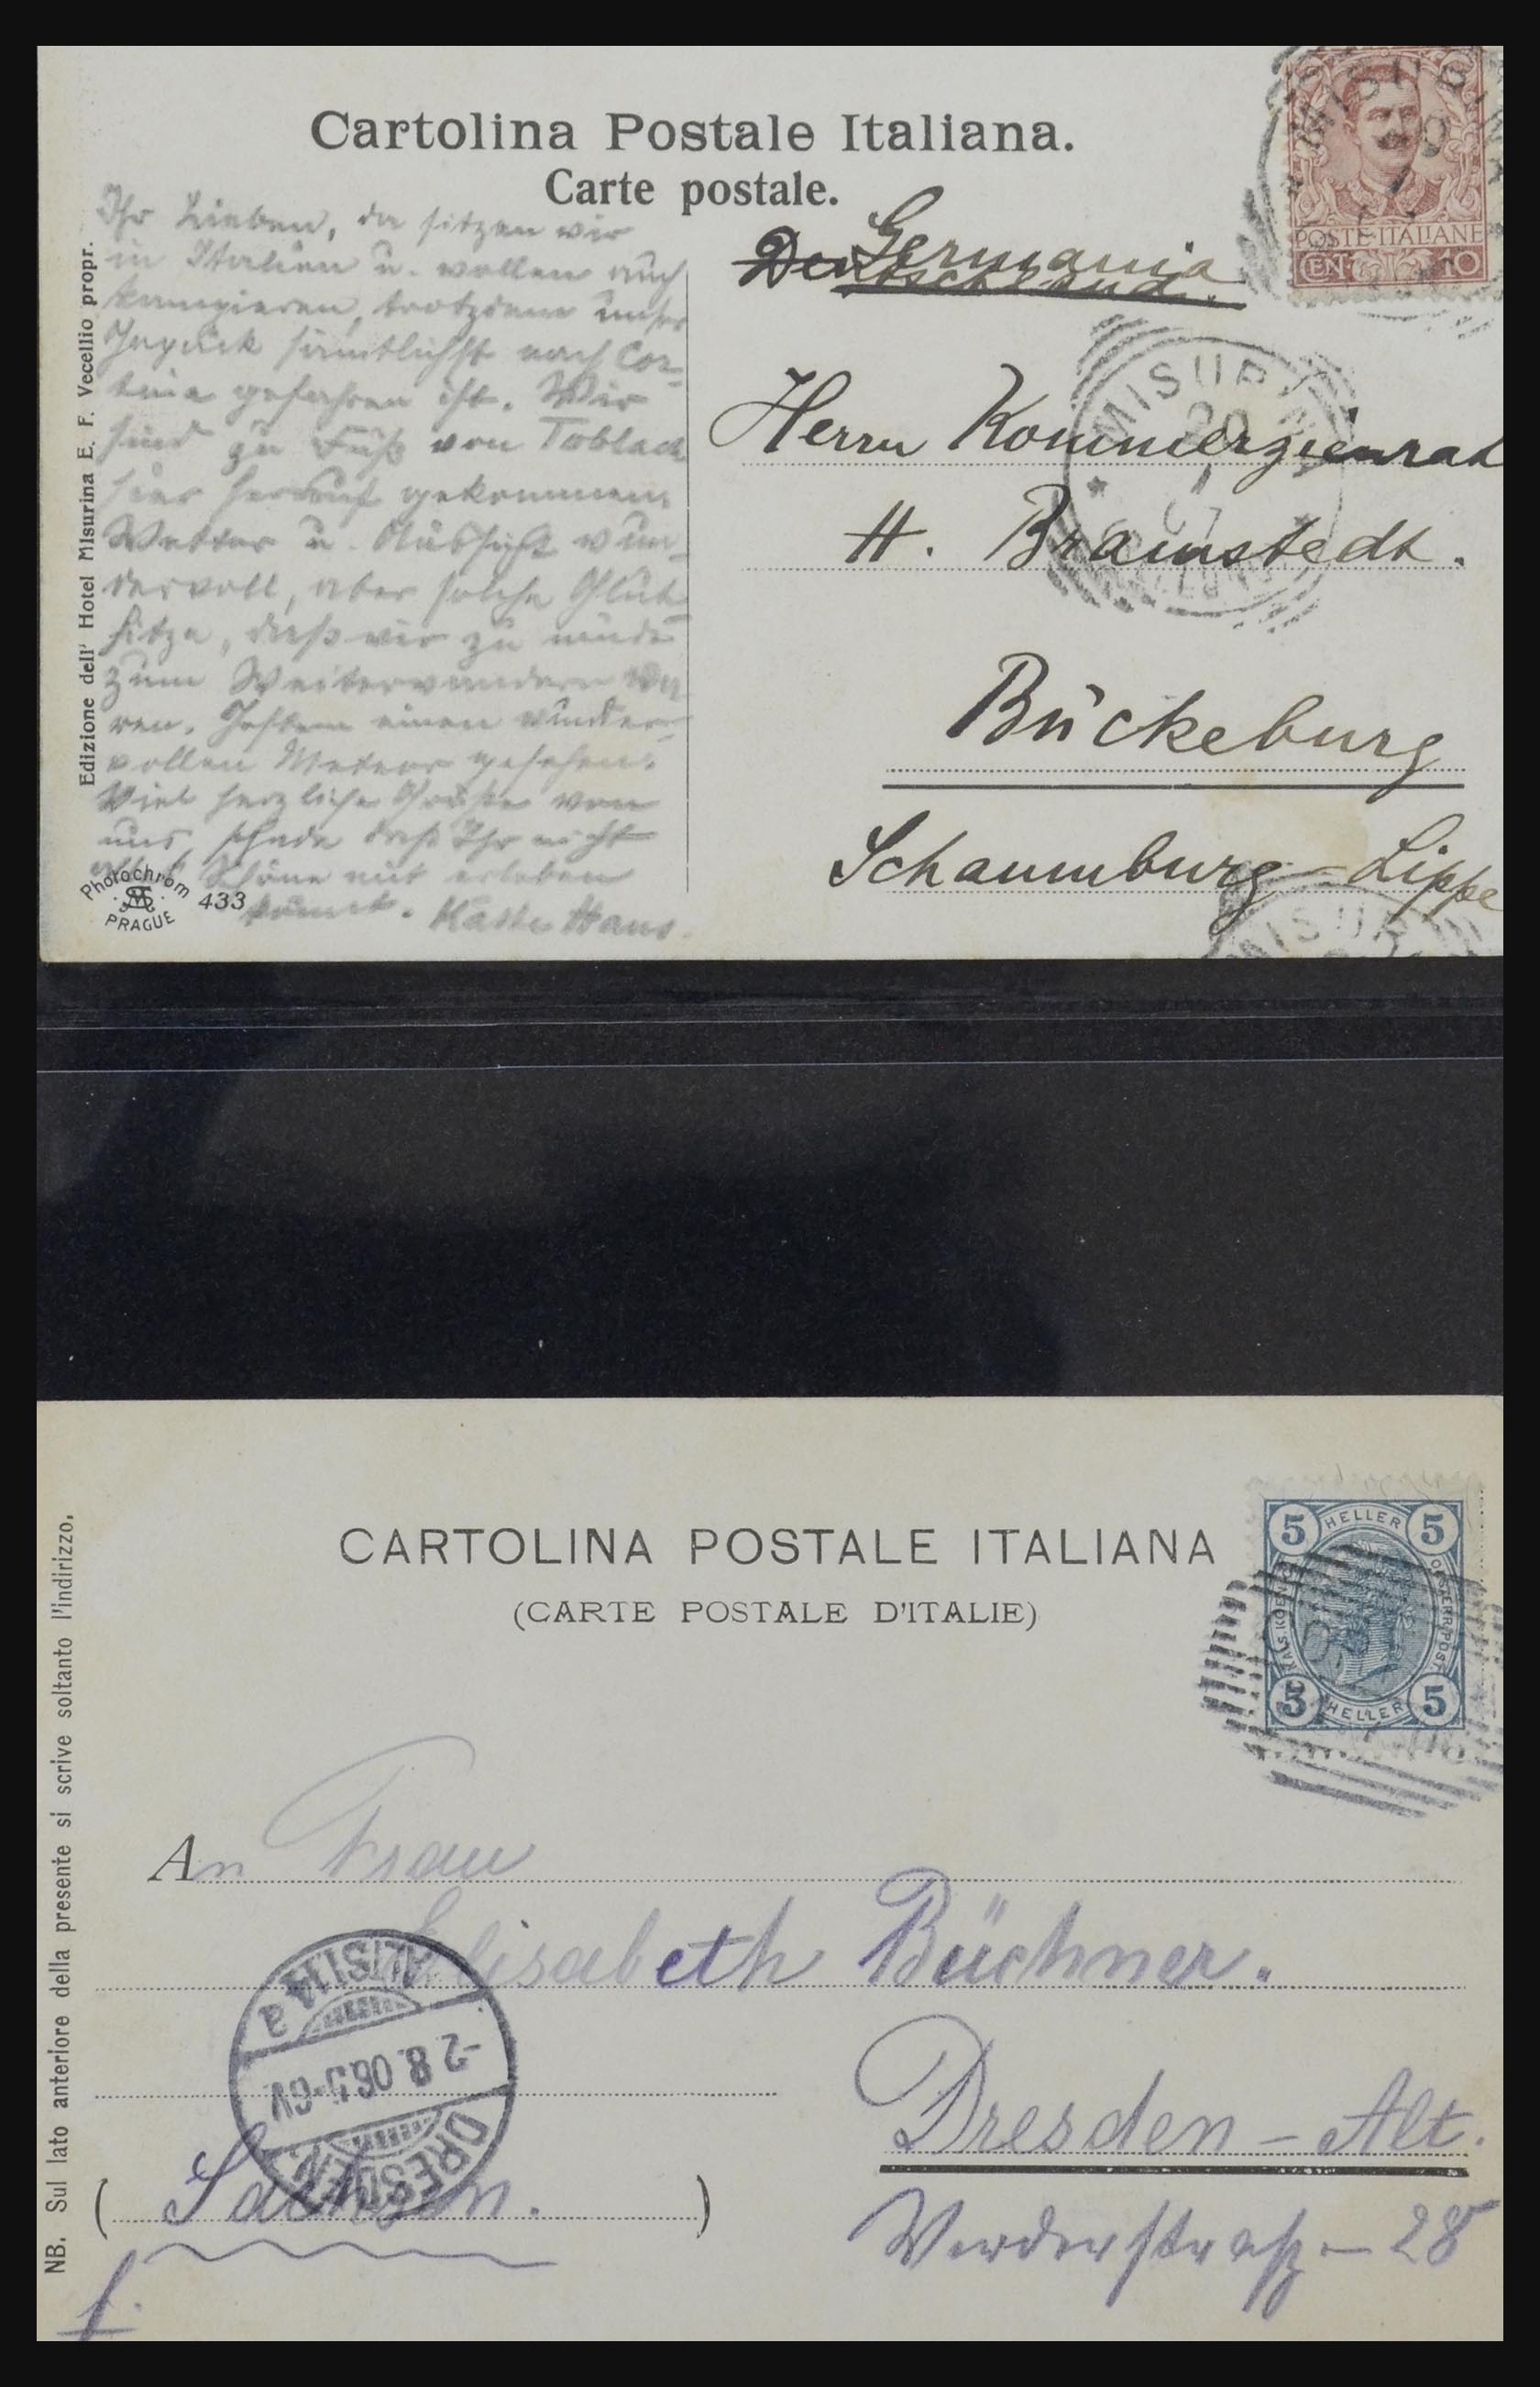 Cartolina Postale Italiana.
Carte postale.
POSTE ITALIANE
CEN 10
Germania
Deutschland.
MISURINA
Ihr Lieben, da sitzen wir
in Italien u. wollen auch
kampieren, trotzdem unser
Gepäck sämtlichst nach Cor-
tina gefahren ist. Wir
sind zu Fuß von Toblach
hier herauf gekommen.
Wetter u. Aussicht wun-
dervoll, aber solche Glut-
hitze, daß wir zu müde
zum Weiterwandern wa
ren. Gestern einen wunder-
vollen Meteor gesehen.
Viel herzliche Grüße von
uns, schade daß Ihr nicht
Schöne mit erleben
könnt. Käthe Hans.
Edizione dell' Hotel Misurina E. F. Vecellio propr.
Photochrom
PRAGUE
433
MISURINA
20
Herrn Kommerzienrat
H. Bramstedt.
Bückeburg
Schaumburg-Lippe
MISUR
CARTOLINA POSTALE ITALIANA
(CARTE POSTALE D'ITALIE)
5 HELLER 5
KAIS. KOENIG. OESTERR. POST
5 HELLER 5
NB. Sul lato anteriore della presente si scrive soltanto l'indirizzo.
An Frau
Elisabeth Büchner.
Dresden-Alt.
Werderstraße 28
(Sachsen.)
DRESDEN
-2.8.06.5-6V
ALTST.14 a